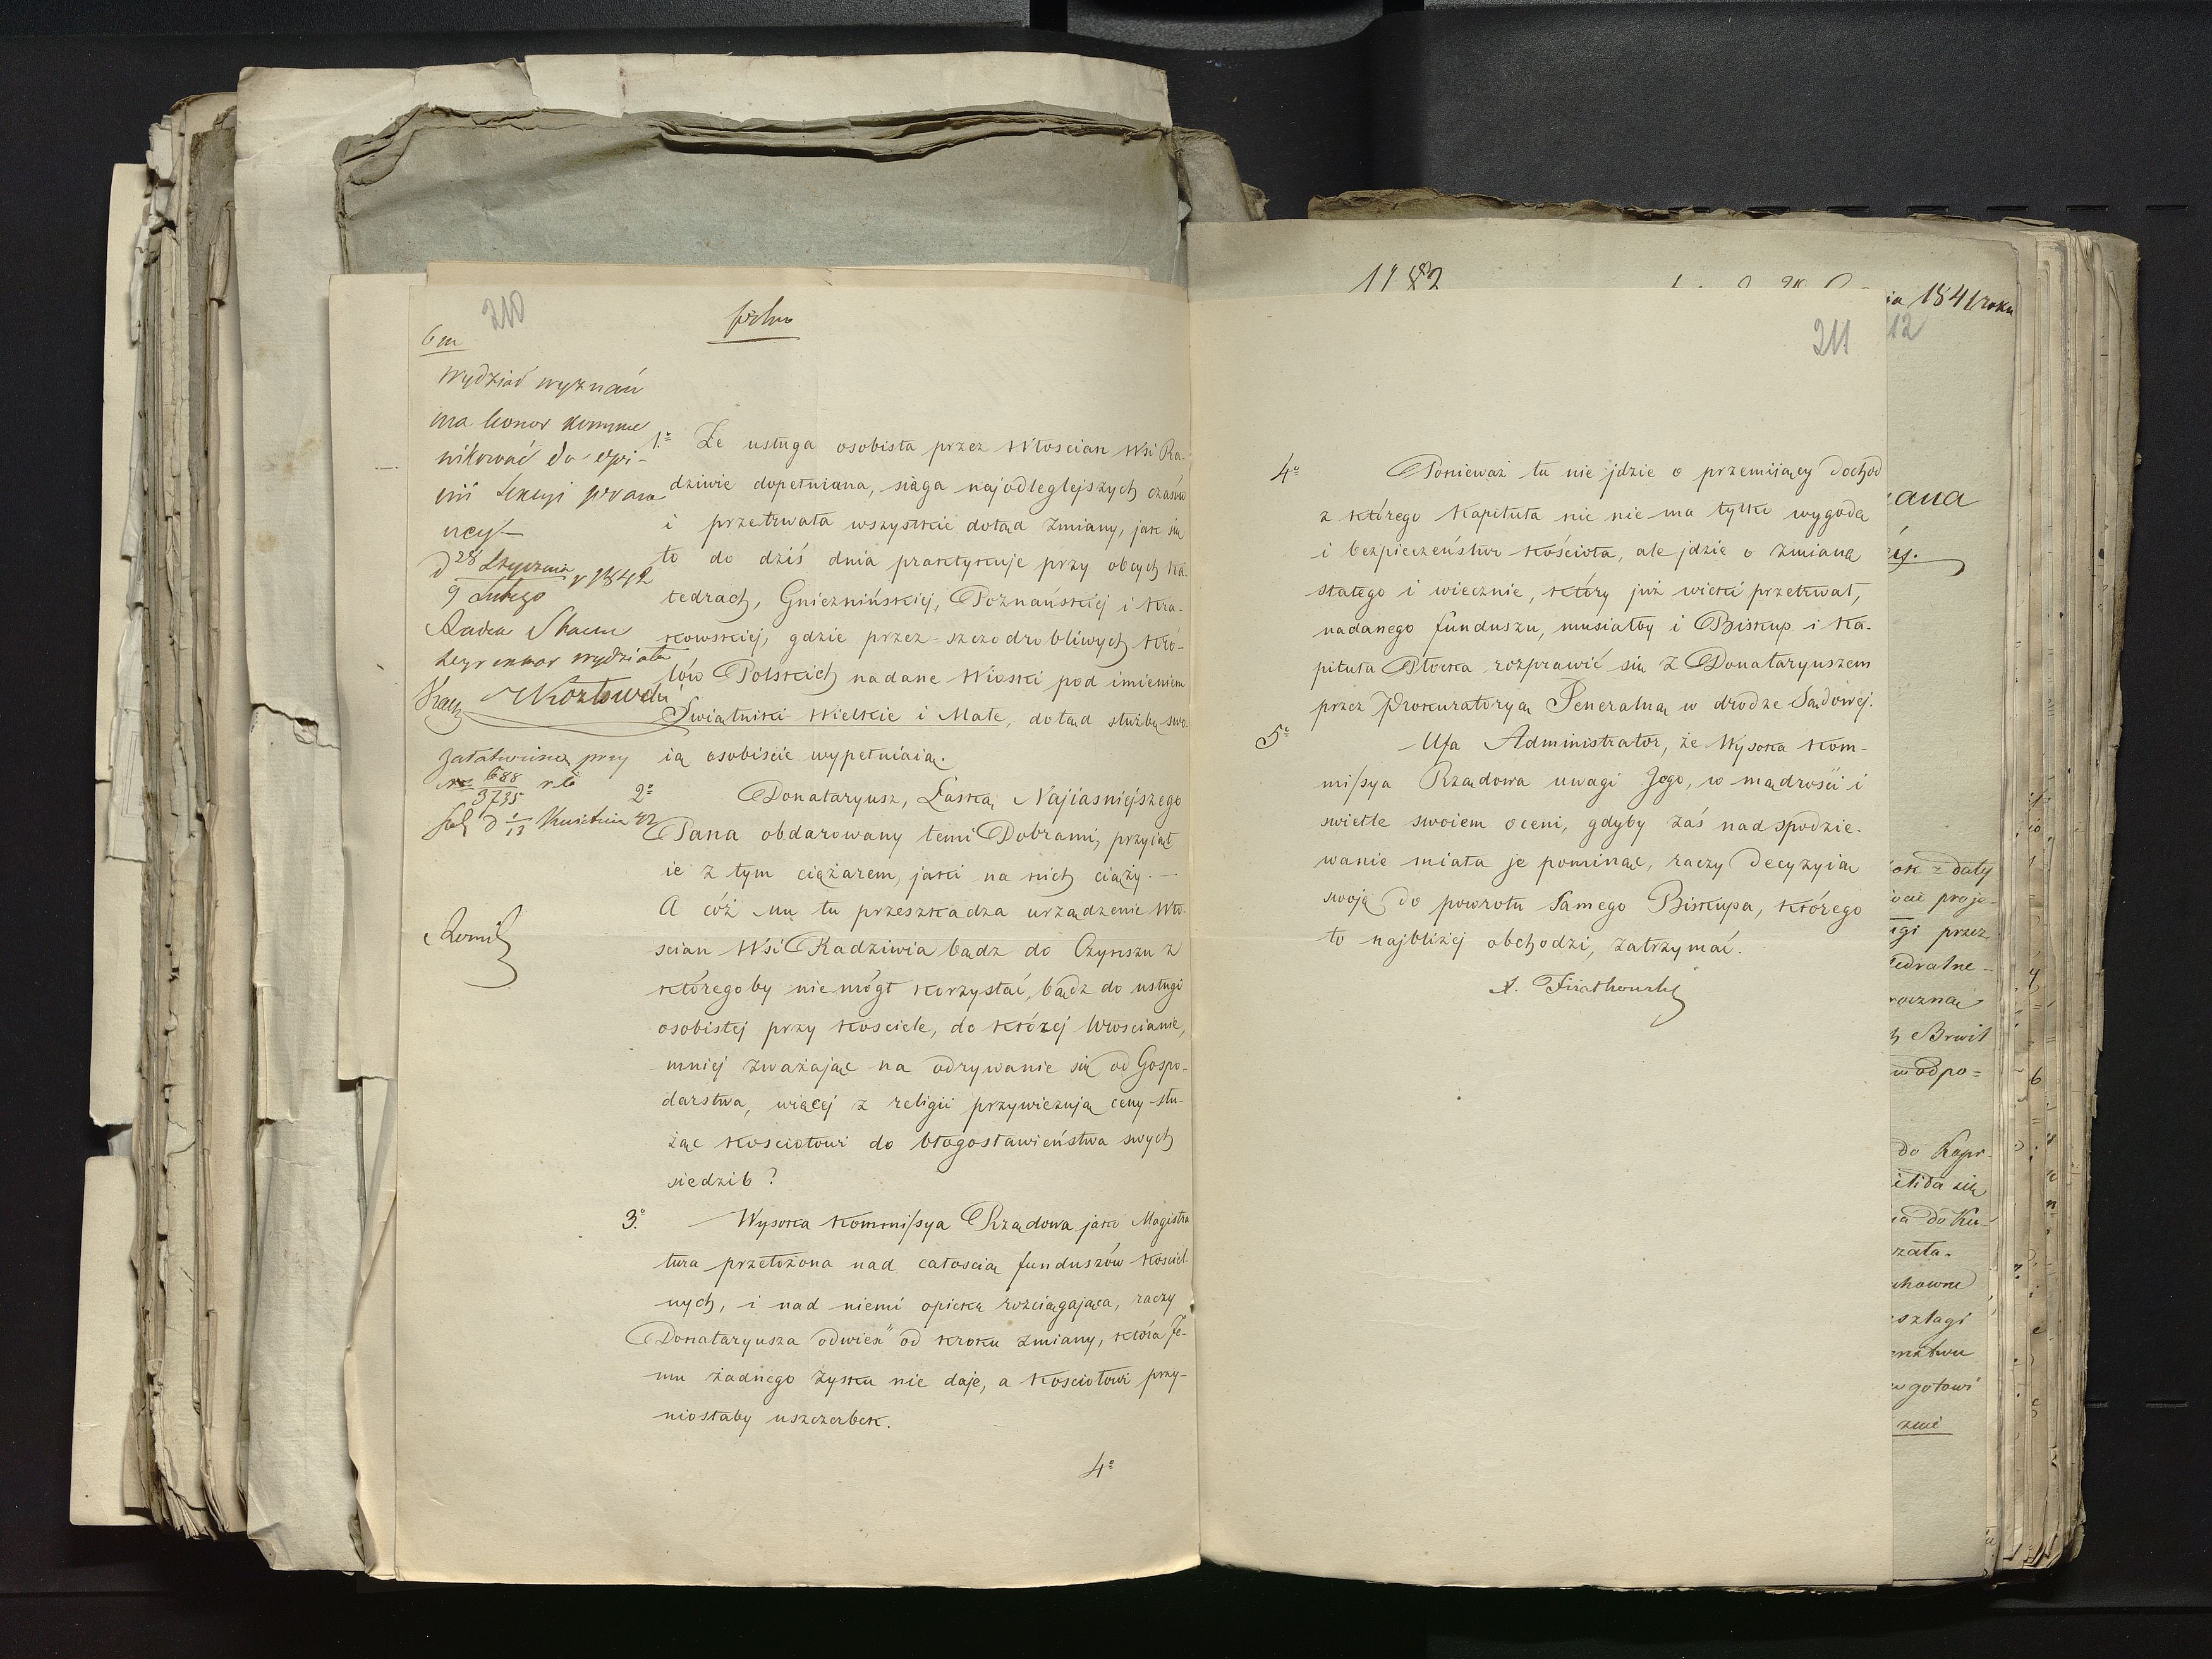 210
6 m
Wydział wyznań
ma honor kommu
nikować do opi-
nii Sekcyi prawa
nej
d 28 Stycznia
9 Lutego r 1842
Radca Stanu
Dyrektor wydziału
Kozłowski
Załatwiono przy
688
3735
d 1/13 Kwietnia 42
1.º Że usługa osobista przez Włoscian Wsi Ra-
dziwie dopełniana, siąga najodleglejszych czasów
i przetrwała wszystkie dotąd zmiany, jak się
to do dziś dnia praktykuje przy obcych Ka-
tedrach, Gnieznińskiéj, Poznańskiéj i Kra-
kowskiej, gdzie przez szczodrobliwych Kró-
lów Polskich nadane Wioski pod imieniem
Swiątniki Wielkie i Małe, dotąd służbę swo-
ią osobiscie wypełniaią.
2º Donataryusz, Łaską Najiasniejszego
Pana obdarowany temi Dobrami, przyiął
ie z tym ciężarem, jaki na nich ciąży. —
A cóż mu tu przeszkadza urządzenie Wło-
scian Wsi Radziwia bądz do Czynszu z
któregoby nie mógł korzystać, bądz do usługi
osobistéj przy Kosciele, do któréj Włoscianie,
mniéj zważając na odrywanie się od Gospo-
darstwa, więcéj z religii przywiezują ceny słu-
żąc Kosciołowi do błogosławieństwa swych
siedzib?
3.º Wysoka Kommissya Rządowa jako Magistra
tura przełożona nad całoscią funduszów Kosciel-
nych, i nad niemi opiekę rozciągająca, raczy
Donataryusza odwieść od kroku zmiany, która Je-
mu żadnego zysku nie daje, a Kosciołowi przy-
niosłaby uszczerbek.
4º
1182
211
4º Ponieważ tu nie jdzie o przemiiaący dochod
z którego Kapituła nic nie ma tylko wygodę
i bezpieczeństwo Kościoła, ale jdzie o zmianę
stałego i wiecznie, który już wieki przetrwał,
nadanego funduszu, musiałby i Biskup i Ka-
pituła Płocka rozprawić się z Donataryuszem
przez Prokuratoryą Jeneralną w drodze Sądowéj.
5º Ufa Administrator, że Wysoka Kom-
missya Rządowa uwagi Jego, w mądrości i
swietle swoiem oceni, gdyby zaś nadspodzie-
wanie miała je pominąć, raczy decyzyią
swoją do powrotu Samego Biskupa, którego
to najbliżéj obchodzi, zatrzymać.
A. Fijałkowski
1841 roku
12